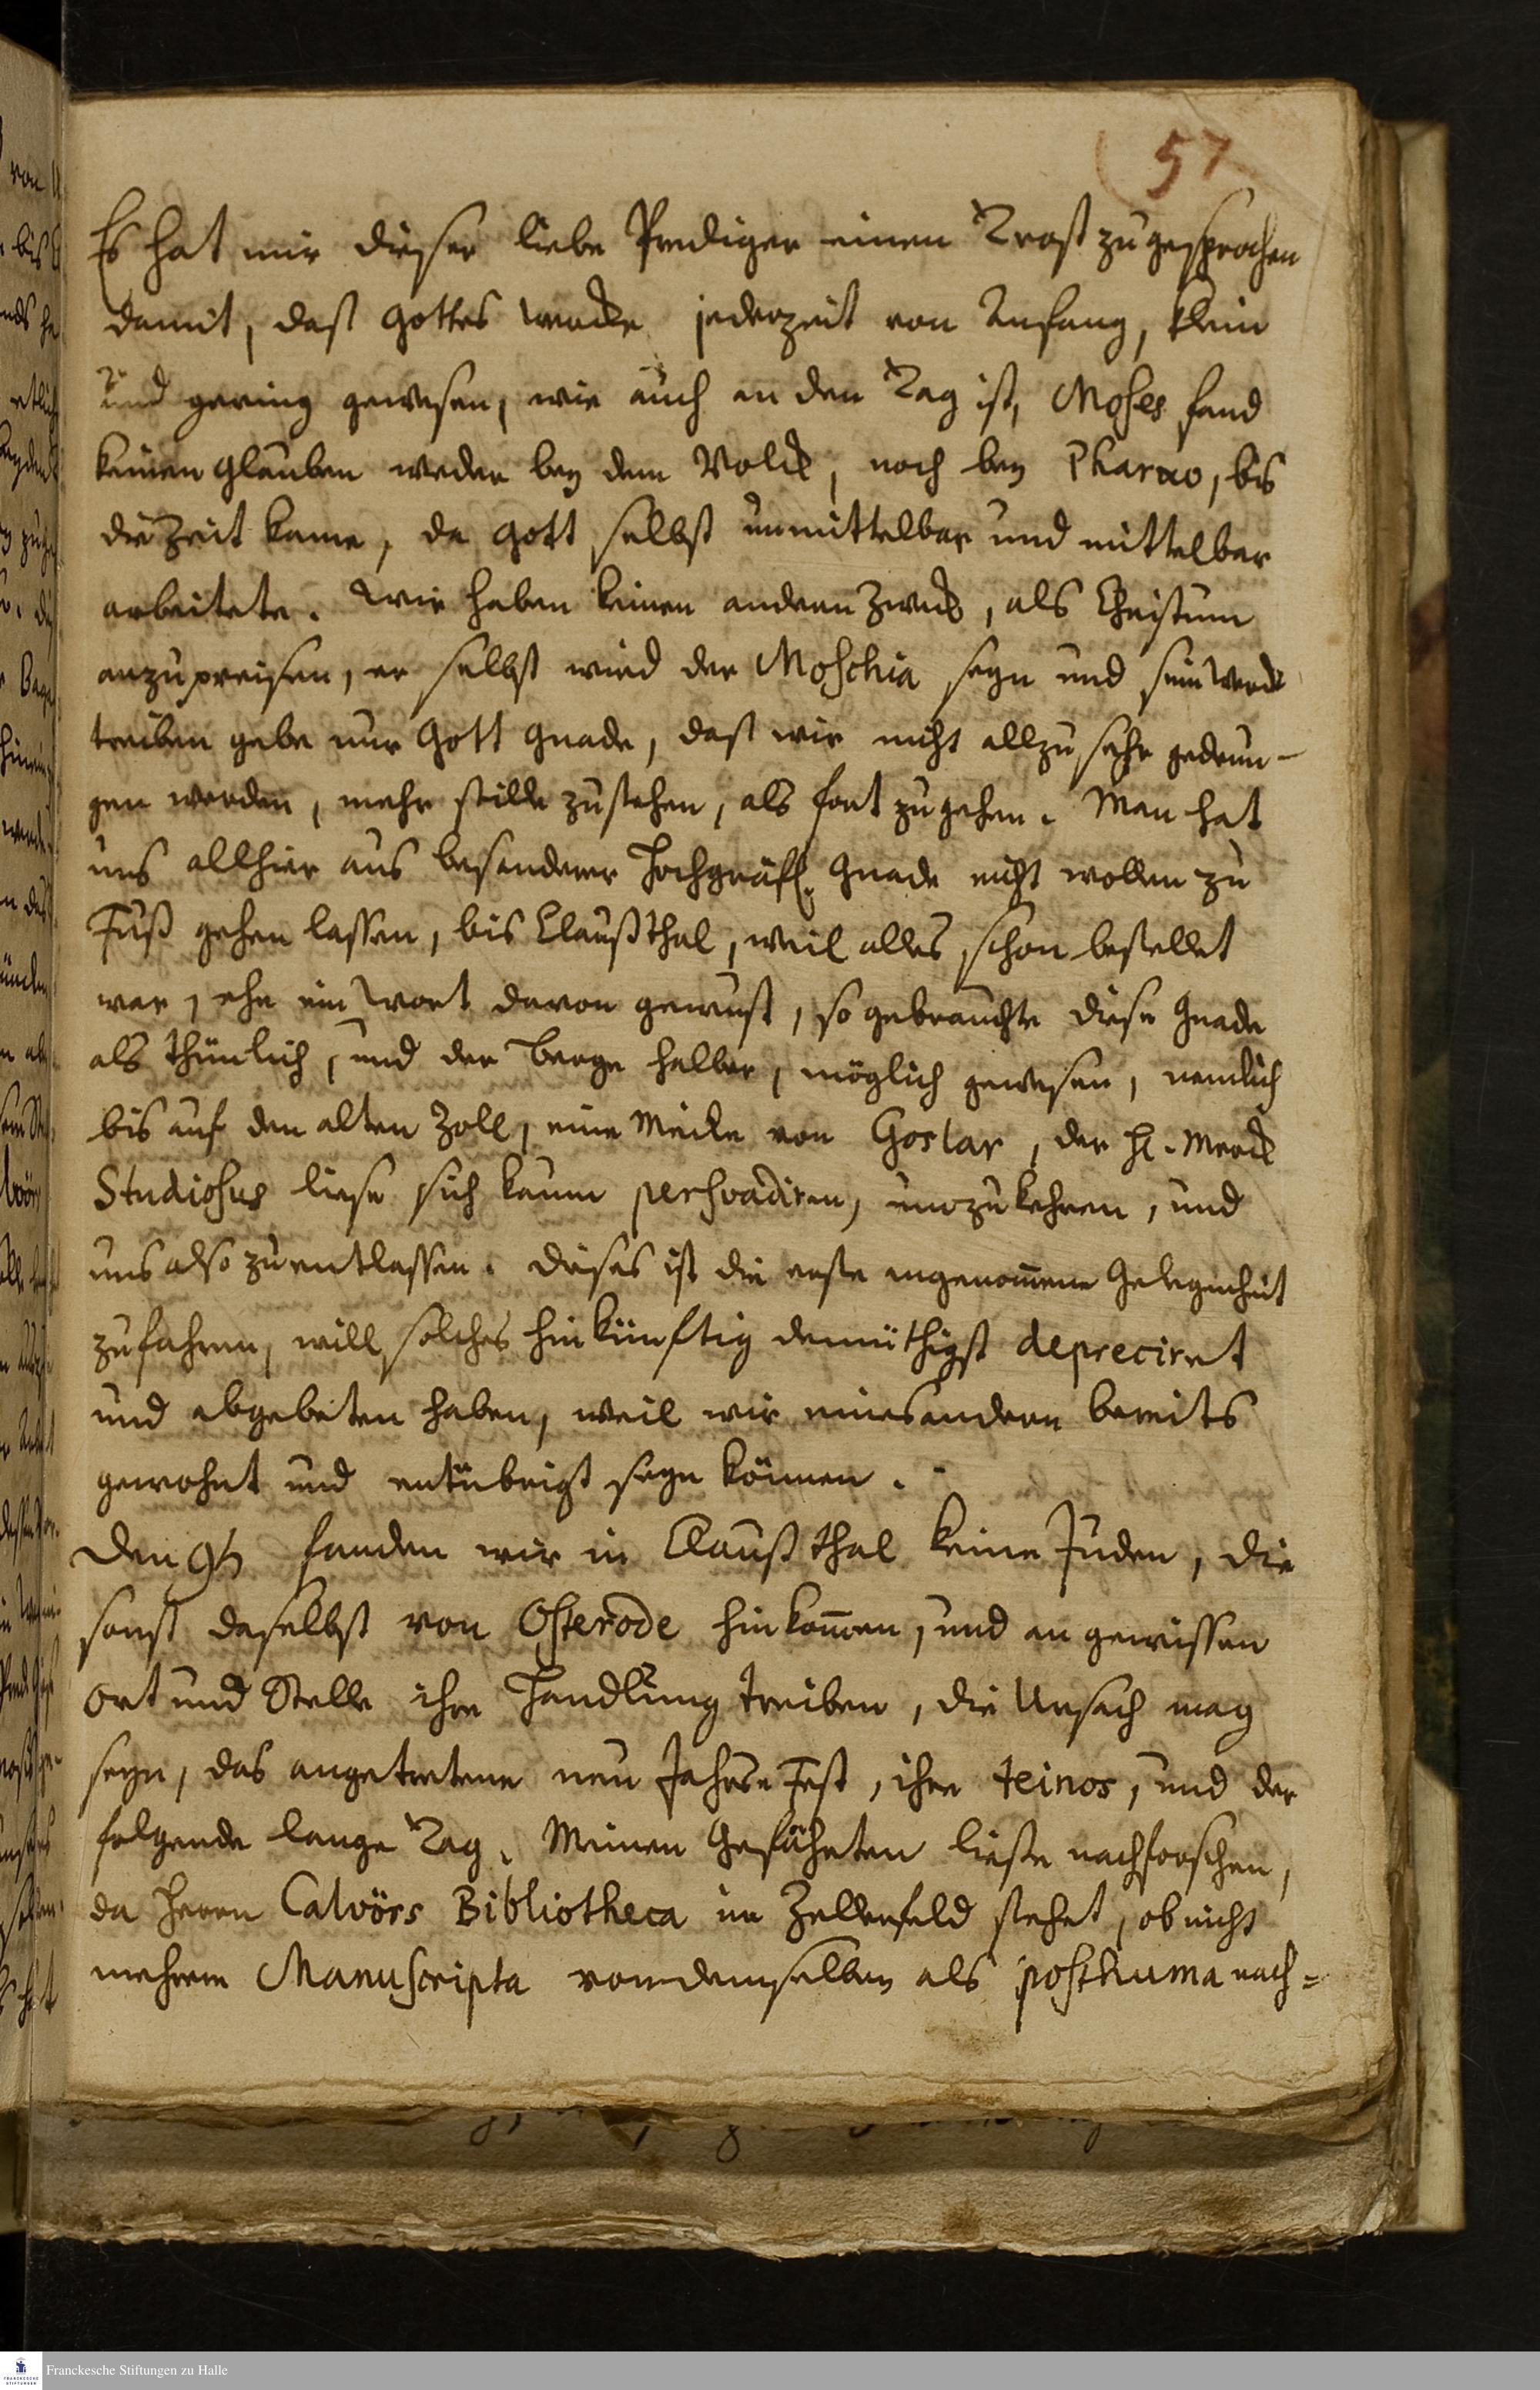 57
Es hat mir dieser liebe Prediger einen Trost zugesprochen
damit, dast Gottes Wercke jederzeit von Anfang, klein
und gering gewesen, wie auch an den Tag ist, Moses fand
keinen Glauben weder bey dem Volck, noch bey Pharao, bis
die Zeit kame, da Gott selbst unmittelbar und mittelbar
arbeitete. Wir haben keinen andern Zweck, als Christum
anzupreisen, er selbst wird der Moschia seyn und sein Werck
treiben gebe nur Gott Gnade, dast wir nicht allzu sehr gedrun-
gen werden, mehr stille zustehen, als fort zugehen. Man hat
uns allhier aus besonderer Hochgräfl. Gnade nicht wollen zu
Fuß gehen lassen, bis Claußthal, weil alles schon bestellet
war, ehe ein Wort davon gewust, so gebrauchte diese Gnade
als thunlich, und der Berge halber, möglich gewesen, nemlich
bis auf den alten Zoll, eine Meile von Goslar, der H.
Studiosus liese sich kaum persvadiren, umzukehren, und
uns also zu entlassen. Dieses ist die erste angenom̄ene Gelegenheit
zufahren, will solches hinkünftig demüthigst depreciret
und abgebeten haben, weil wir eines andern bereits
gewohnt und entübrigt seyn können.
Den 9t fanden wir in Claußthal keine Juden, die
sonst daselbst von Osterode hinkom̄en, und an gewissen
Ort und Stelle ihre Handlung treiben, die Ursach mag
seyn, das angetretene neu Jahrs Fest, ihre teinos, und der
folgende lange Tag. Meinen Gefährten lieste nachforschen,
da Herrn Calvörs Bibliotheca in Zellerfeld stehet, ob nicht
mehrere Manuscripta von demselben als posthuma nach=
Franckesche Stiftungen zu Halle